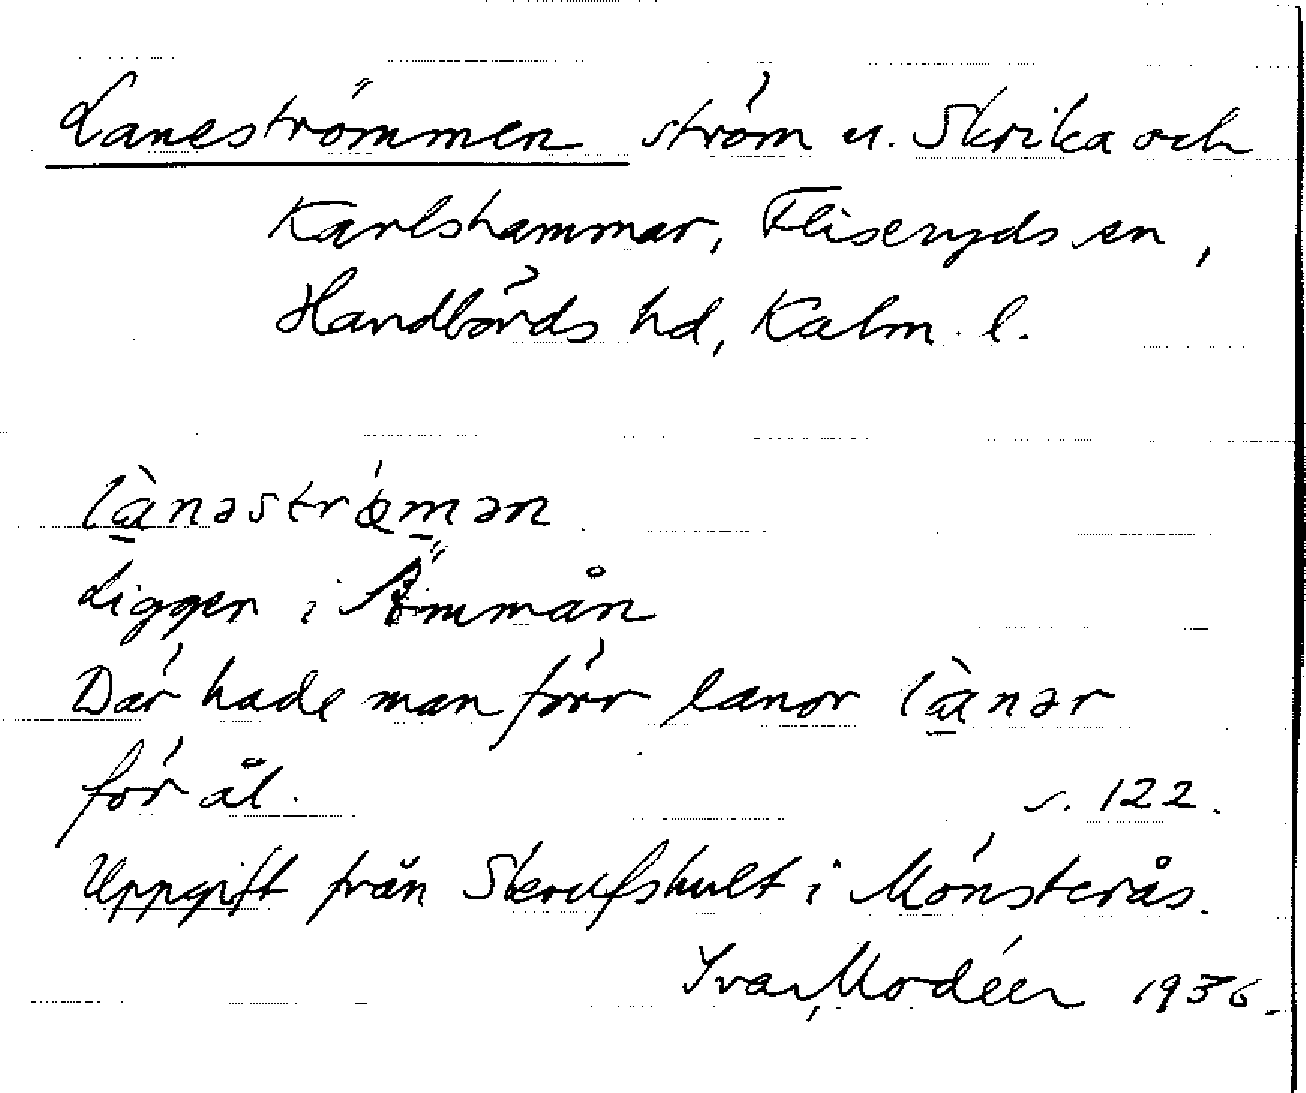 Laneströmmen ström u. Skrika och
Karlshammar, Fliseryds sn,
Handbörds hd, Kalm. l.
là̱nəstrø̀m̱ən
Ligger i Ämmån
Där hade man förr lanor là̱nər
för ål. s. 122.
Uppgift från Skrufshult i Mönsterås.
Ivar Modéer 1936.